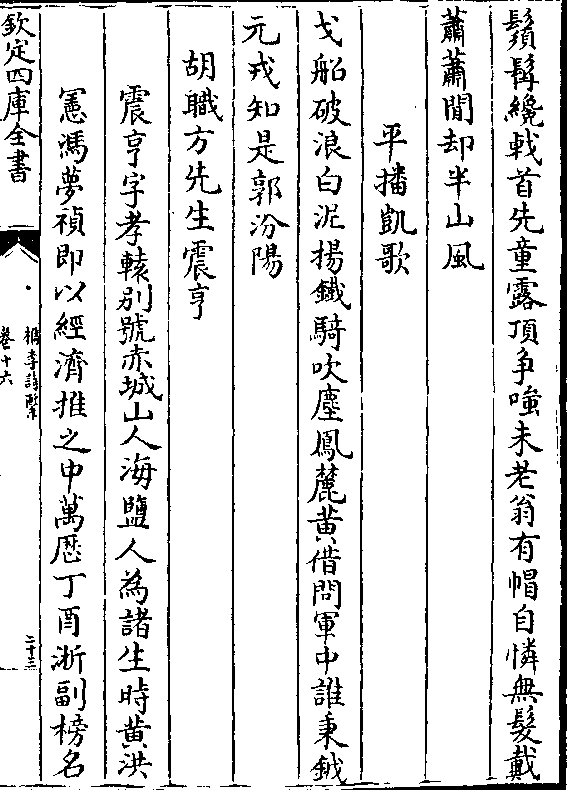 鬚髯纔戟首先童露頂争嗤未老翁有帽自憐無髮戴
蕭蕭閒却半山風
平播凱歌
戈船破浪白泥揚鐵騎吹塵鳳麓黄借問軍中誰秉鉞
元戎知是郭汾陽
胡職方先生震亨
震亨字孝轅别號赤城山人海鹽人為諸生時黄洪
憲馮夢禎即以經濟推之中萬厯丁酉浙副榜名
欽定四庫全書
檇李詩繫
卷十六
二十三